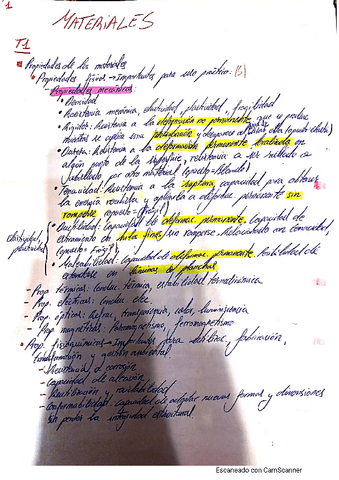 1
MATERIALES
T1
Propiedades de los materiales
Propiedades físicas → Importantes para uso práctico:
Propiedades mecánicas:
• Densidad
• Resistencia mecánica, elasticidad, plasticidad, fragilidad
• Rigidez: Resistencia a la deformación no permanente que se produce
mientras se aplica una
• Dureza: Resistencia a la deformación permanente localizada en
algún punto de la superficie, resistencia a ser rallado o
por otro material (opuesto = blando)
• Tenacidad: Resistencia a la ruptura, capacidad para
la energía recibida y deformarse permanente sin
romperse (opuesto = frágil)
• Ductilidad: capacidad de deformar permanente. Capacidad de
estiramiento en hilos finos sin romperse. Relacionado con
• Maleabilidad: capacidad de deformar permanente. de
en láminas o planchas
- Prop. térmicas: conduc. térmica, estabilidad termodinámica
- Prop. eléctricas: conduc. elec.
- Prop. ópticas: Refrac, transparencia, color, luminiscencia
- Prop. magnéticas: Paramagnetismo, ferromagnetismo
• Prop. fisicoquímicas → Importantes para fabricación,
transformación y gestión ambiental.
- Resistencia a corrosión
- capacidad de aleación
-
- conformabilidad: capacidad de adoptar nuevas formas y dimensiones
sin perder la integridad estructural
Escaneado con CamScanner